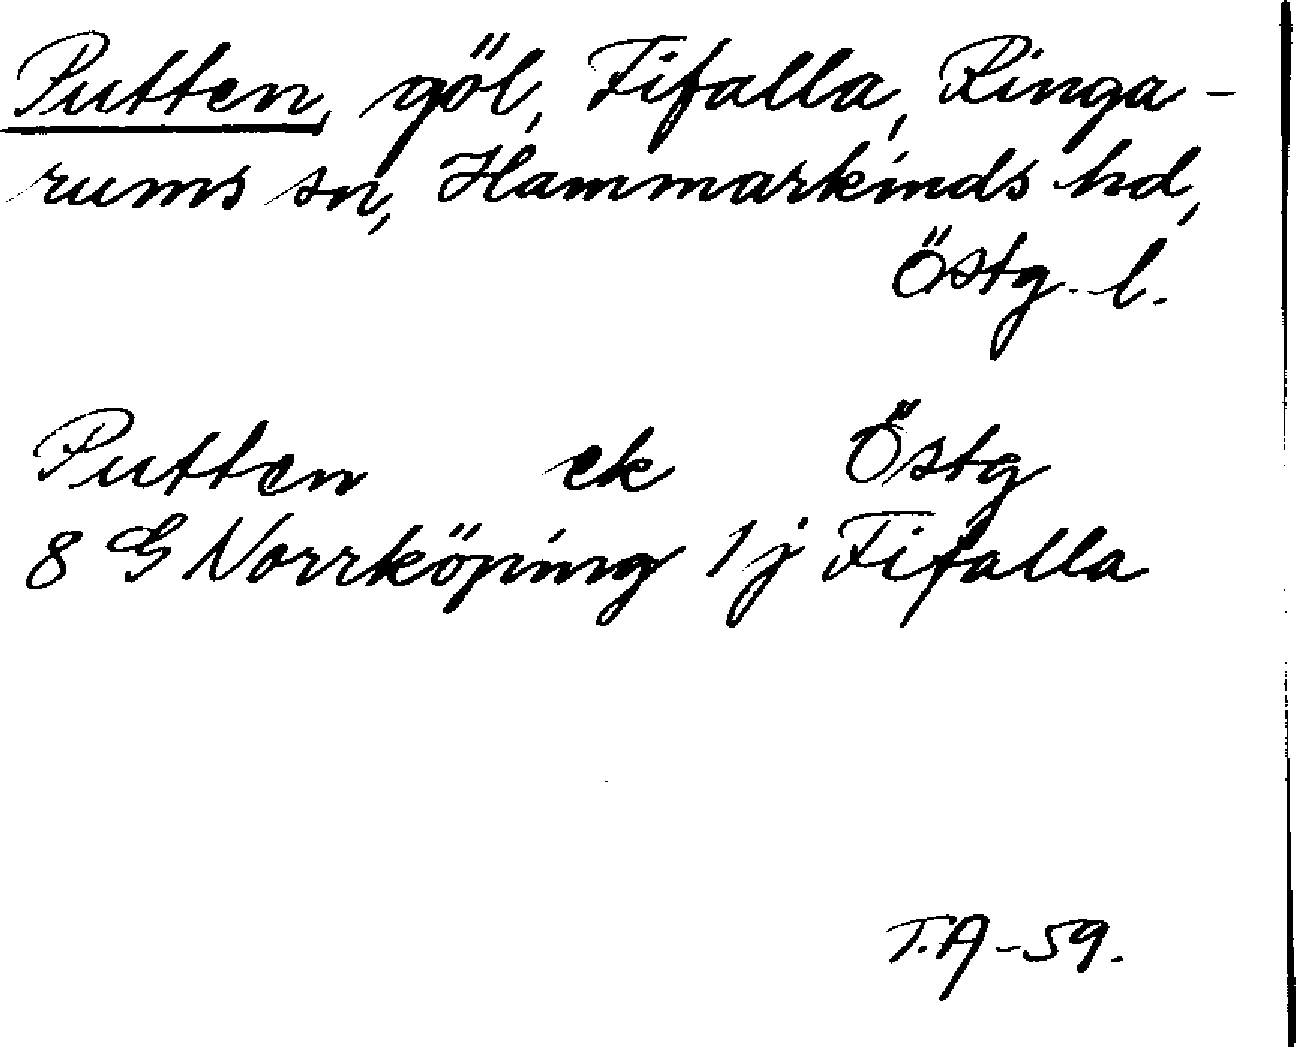 Putten, göl, Fifalla, Ringa-
rums sn, Hammarkinds hd,
Östg. l.
Putten ek Östg
8 G Norrköping 1 j Fifalla
T.A-59.